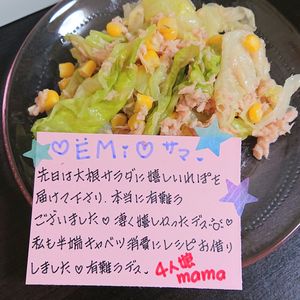 ♡EMi♡サマ
先日は大根サラダに嬉しいれぽを
届けて下さり、本当に有難う
ございました♡凄く嬉しかったデス
私も半端キャベツ消費にレシピお借り
しました♡有難うデス
4人娘
mama